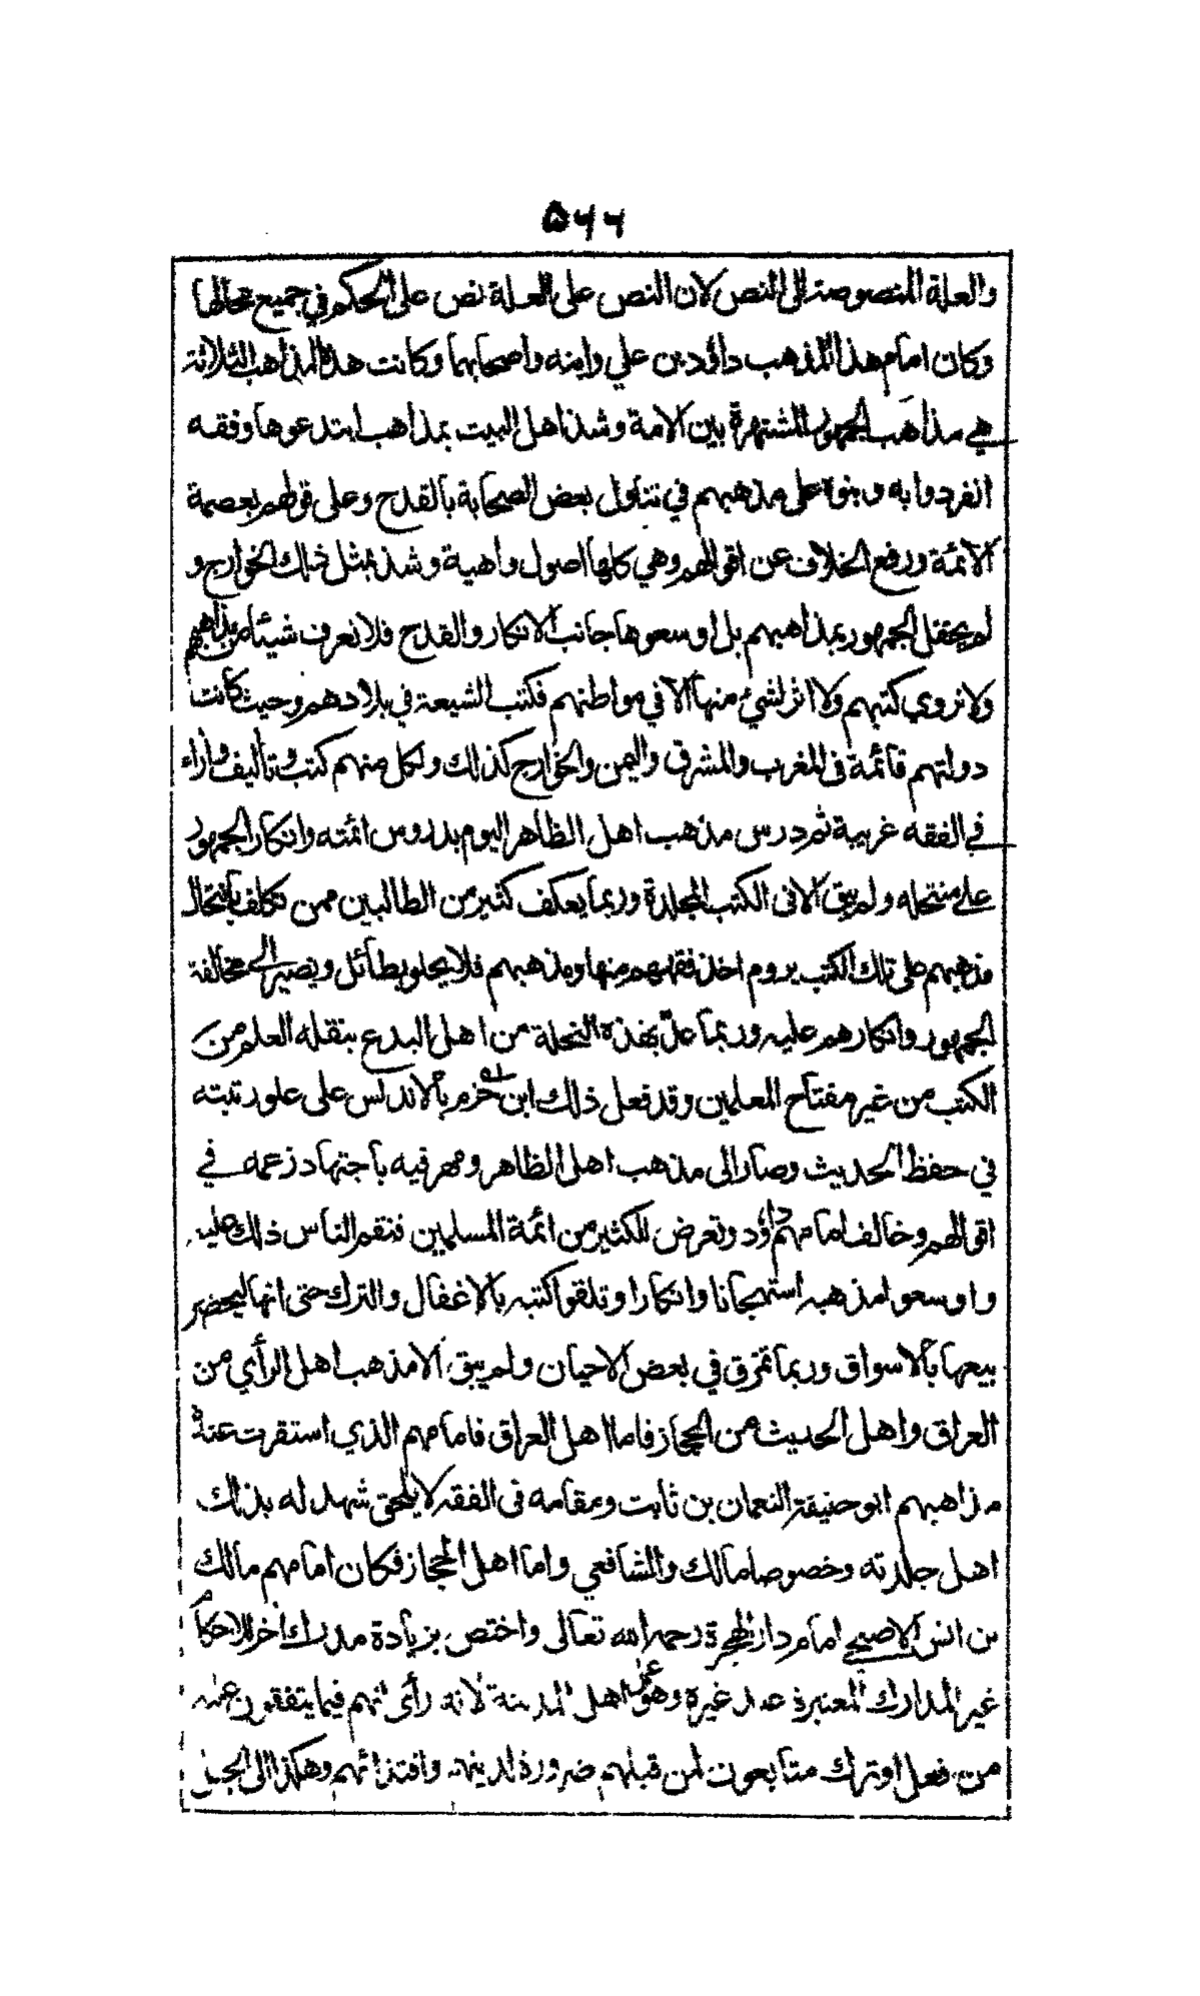 ۵۶۶
والعلة المنصوصة الى النص لان النص على العلة نص على الحكم في جميع محالها
وكان امام هذا المذهب داؤد بن علي وابنه واصحابهما وكانت هذه المذاهب الثلاثة
هي مذاهب الجمهور المشتهرة بين الامة وشذ اهل البيت بمذاهب ابتدعوها وفقه
انفردوا به وبنوه على مذهبهم في تناول بعض الصحابة بالقدح وعلى قولهم بعصمة
الائمة ورفع الخلاف عن اقوالهم وهي كلها اصول واهية وشذ بمثل ذلك الخوارج و
لم يحتفل الجمهور بمذاهبهم بل اوسعوها جانب الانكار والقدح فلا نعرف شيئا من مذاهبهم
ولا نروي كتبهم ولا اثر لشيء منها الا في مواطنهم فكتب الشيعة في بلادهم وحيث كانت
دولتهم قائمة فى المغرب والمشرق واليمن والخوارج كذلك ولكل منهم كتب وتأليف واراء
في الفقه غريبة ثم درس مذهب اهل الظاهر اليوم بدروس ائمته وانكار الجمهور
على منتحله ولم يبق الا فى الكتب المجلدة وربما يعكف كثير من الطالبين ممن تكلف بانتحال
مذهبهم على تلك الكتب يروم اخذ فقههم منها ومذهبهم فلا يحلو بطائل ويصير الى مخالفة
الجمهور وانكارهم عليه وربما عدّ بهذه النحلة من اهل البدع بنقله العلم من
الكتب من غير مفتاح المعلمين وقد فعل ذلك ابن حزم بالاندلس على علو رتبته
في حفظ الحديث وصار الى مذهب اهل الظاهر ومهر فيه باجتهاد زعمه في
اقوالهم وخالف امامهم داؤد وتعرض للكثير من ائمة المسلمين فنقم الناس ذلك عليه
واوسعوا مذهبه استهجانا وانكارا وتلقوا كتبه بالاغفال والترك حتى انها ليحضر
بيعها بالاسواق وربما تمزق في بعض الاحيان ولم يبق الا مذهب اهل الرأي من
العراق واهل الحديث من الحجاز فاما اهل العراق فامامهم الذي استقرت عنده
مذاهبهم ابو حنيفة النعمان بن ثابت ومقامه فى الفقه لا يلحق شهد له بذلك
اهل جلدته وخصوصا مالك والشافعي واما اهل الحجاز فكان امامهم مالك
بن انس الاصبحي امام دار الهجرة رحمه الله تعالى واختص بزيادة مدرك اخر للاحكام
غير المدارك المعتبرة عند غيره وهو عمل اهل المدينة لانه رأى انهم فيما يتفقون عليه
من فعل او ترك متابعون لمن قبلهم ضرورة لدينهم واقتدائهم وهكذا الى الجيل